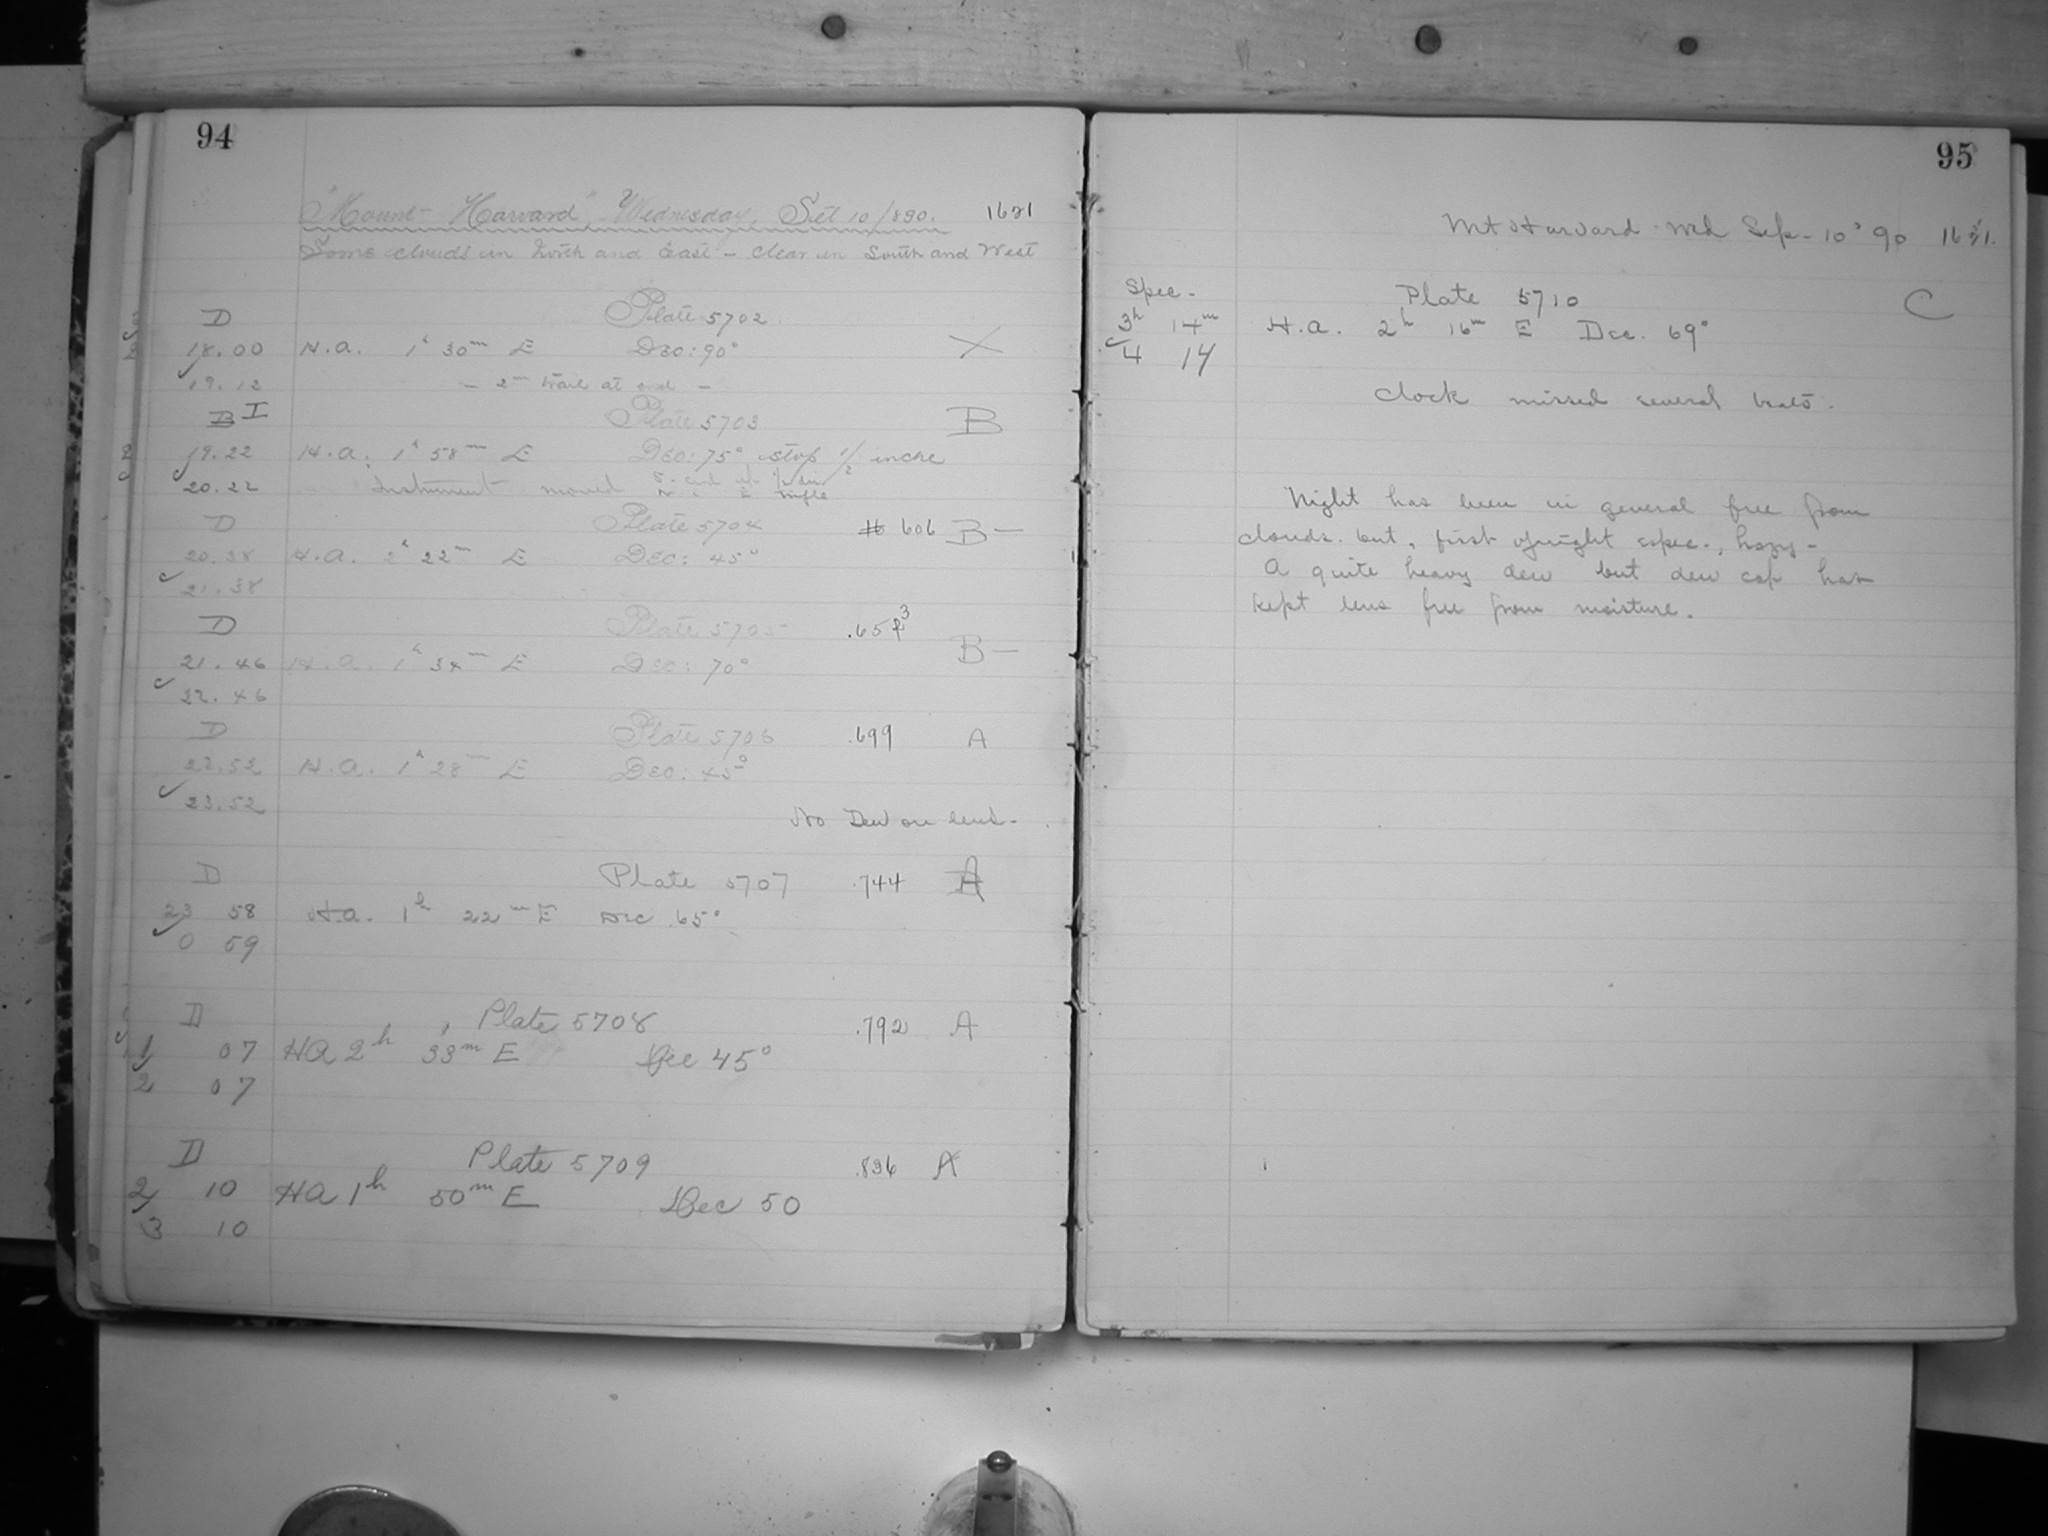 94
"Mount Harvard" Wednesday, Set 10/890. 1621
Some clouds in North and East - Clear in South and West
D Plate 5702
18.00 H.a. 1h 30m E Dec: 90° X
19.12 - 2m trail at end -
B I Plate 5703 B
19.22 H.a. 1h 58m E Dec: 75° stop 1/2 inche
20.22 Instrument moved
D Plate 5704 606 B-
20.38 H.a. 2h 22m E Dec: 45°
21.38
D Plate 5705 .65 3
21.46 H.a. 1h 34m E Dec: 70° B-
22.46
D Plate 5706 .699 A
22.52 H.a. 1h 28m E Dec: 45°
23.52
No Dew on lens-
D Plate 5707 .744 A
23 58 H.a. 1h 22m E Dec .65°
0 59
D Plate 5708 .792 A
1 07 HA 2h 33m E Dec 45°
2 07
D Plate 5709 .836 A
2 10 HA 1h 50m E Dec 50
3 10
95
Mt Harvard - Wed Sep- 10' 90 1621.
Spec- Plate 5710 C
3h 14m H.a. 2h 16m E Dec. 69°
4 14
Clock missed several beats.
Night has been in general free from
clouds. but, first of night espec., hazy-
A quite heavy dew but dew cap has
kept lens free from moisture.